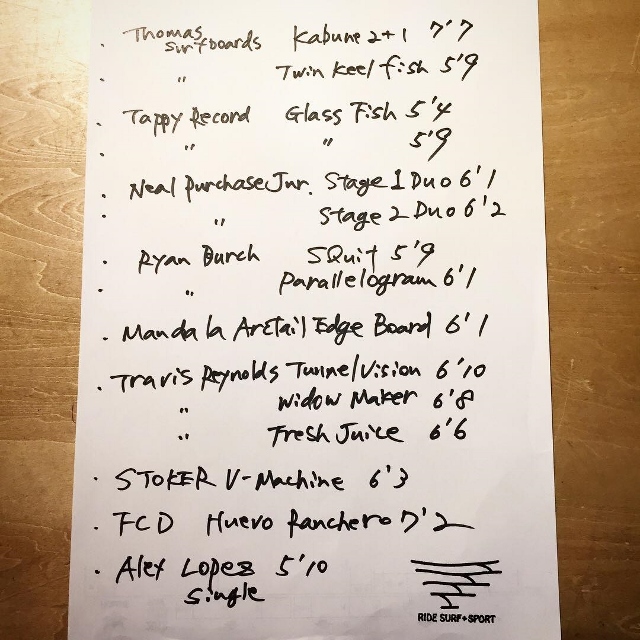 . Thomas surfboards Kabune 2+1 7'7
. " Twin Keel fish 5'9
. Tappy Record Glass Fish 5'4
. " " 5'9
. Neal Purchase Jnr. Stage 1 Duo 6'1
. " Stage 2 Duo 6'2
. Ryan Burch SQuit 5'9
. " Parallelogram 6'1
. Mandala Arctail Edge Board 6'1
. Travis Reynolds Tunnel Vision 6'10
" Widow Maker 6'8
" Fresh Juice 6'6
. STOKER V-Machine 6'3
. FCD Huevo Ranchero 7'2
. Alex Lopez 5'10
Single
RIDE SURF+SPORT